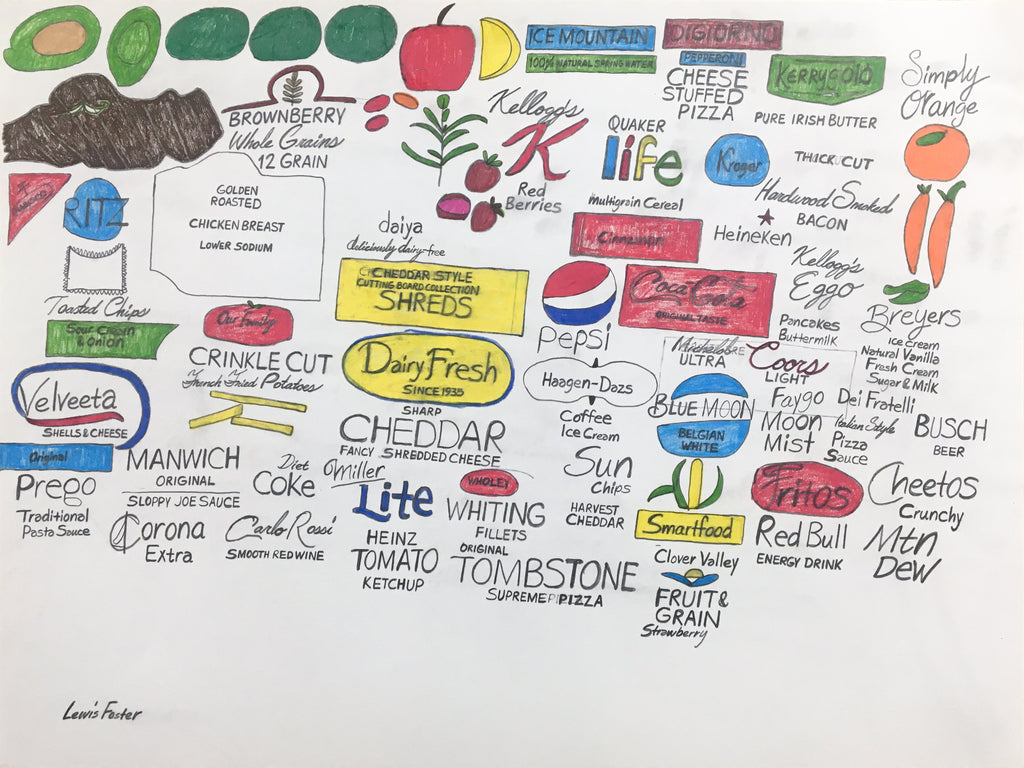 ICE MOUNTAIN
100% NATURAL SPRING WATER
DIGIORNO
PEPPERONI
CHEESE
STUFFED
PIZZA
KERRYGOLD
PURE IRISH BUTTER
Simply
Orange
BROWNBERRY
Whole Grains
12 GRAIN
Kellogg's
K
Red
Berries
QUAKER
life
Multigrain Cereal
Kroger
THICK CUT
Hardwood Smoked
BACON
RITZ
Toasted Chips
Sour Cream
& Onion
GOLDEN
ROASTED
CHICKEN BREAST
LOWER SODIUM
daiya
deliciously dairy-free
CHEDDAR STYLE
CUTTING BOARD COLLECTION
SHREDS
Cinnamon
Heineken
Kellogg's
Eggo
Pancakes
Buttermilk
pepsi
Coca Cola
ORIGINAL TASTE
Breyers
Ice Cream
Natural Vanilla
Fresh Cream
Sugar & Milk
Our Family
CRINKLE CUT
French Fried Potatoes
Dairy Fresh
SINCE 1935
SHARP
CHEDDAR
FANCY SHREDDED CHEESE
Haagen-Dazs
Coffee
Ice Cream
ULTRA
Coors
LIGHT
BLUE MOON
BELGIAN
WHITE
Faygo
Moon
Mist
Dei Fratelli
Italian Style
Pizza
Sauce
BUSCH
BEER
Velveeta
SHELLS & CHEESE
Original
MANWICH
ORIGINAL
SLOPPY JOE SAUCE
Diet
Coke
Miller
Lite
WHOLEY
WHITING
FILLETS
Sun
Chips
HARVEST
CHEDDAR
Smartfood
Fritos
Cheetos
Crunchy
Prego
Traditional
Pasta Sauce
Corona
Extra
Carlo Rossi
SMOOTH RED WINE
HEINZ
TOMATO
KETCHUP
ORIGINAL
TOMBSTONE
SUPREME PIZZA
Clover Valley
FRUIT &
GRAIN
Strawberry
Red Bull
ENERGY DRINK
Mtn
Dew
Lewis Foster